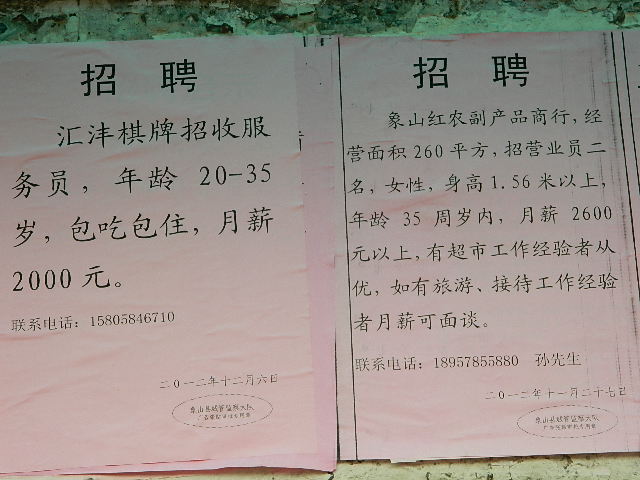 招 聘
汇沣棋牌招收服
务员，年龄 20-35
岁，包吃包住，月薪
2000 元。
联系电话：15805846710
二0一二年十二月六日
象山县城管监察大队
招 聘
象山红农副产品商行，经
营面积 260 平方，招营业员二
名，女性，身高 1.56 米以上，
年龄 35 周岁内，月薪 2600
元以上，有超市工作经验者从
优，如有旅游、接待工作经验
者月薪可面谈。
联系电话：18957855880 孙先生
二0一二年十一月二十七日
象山县城管监察大队